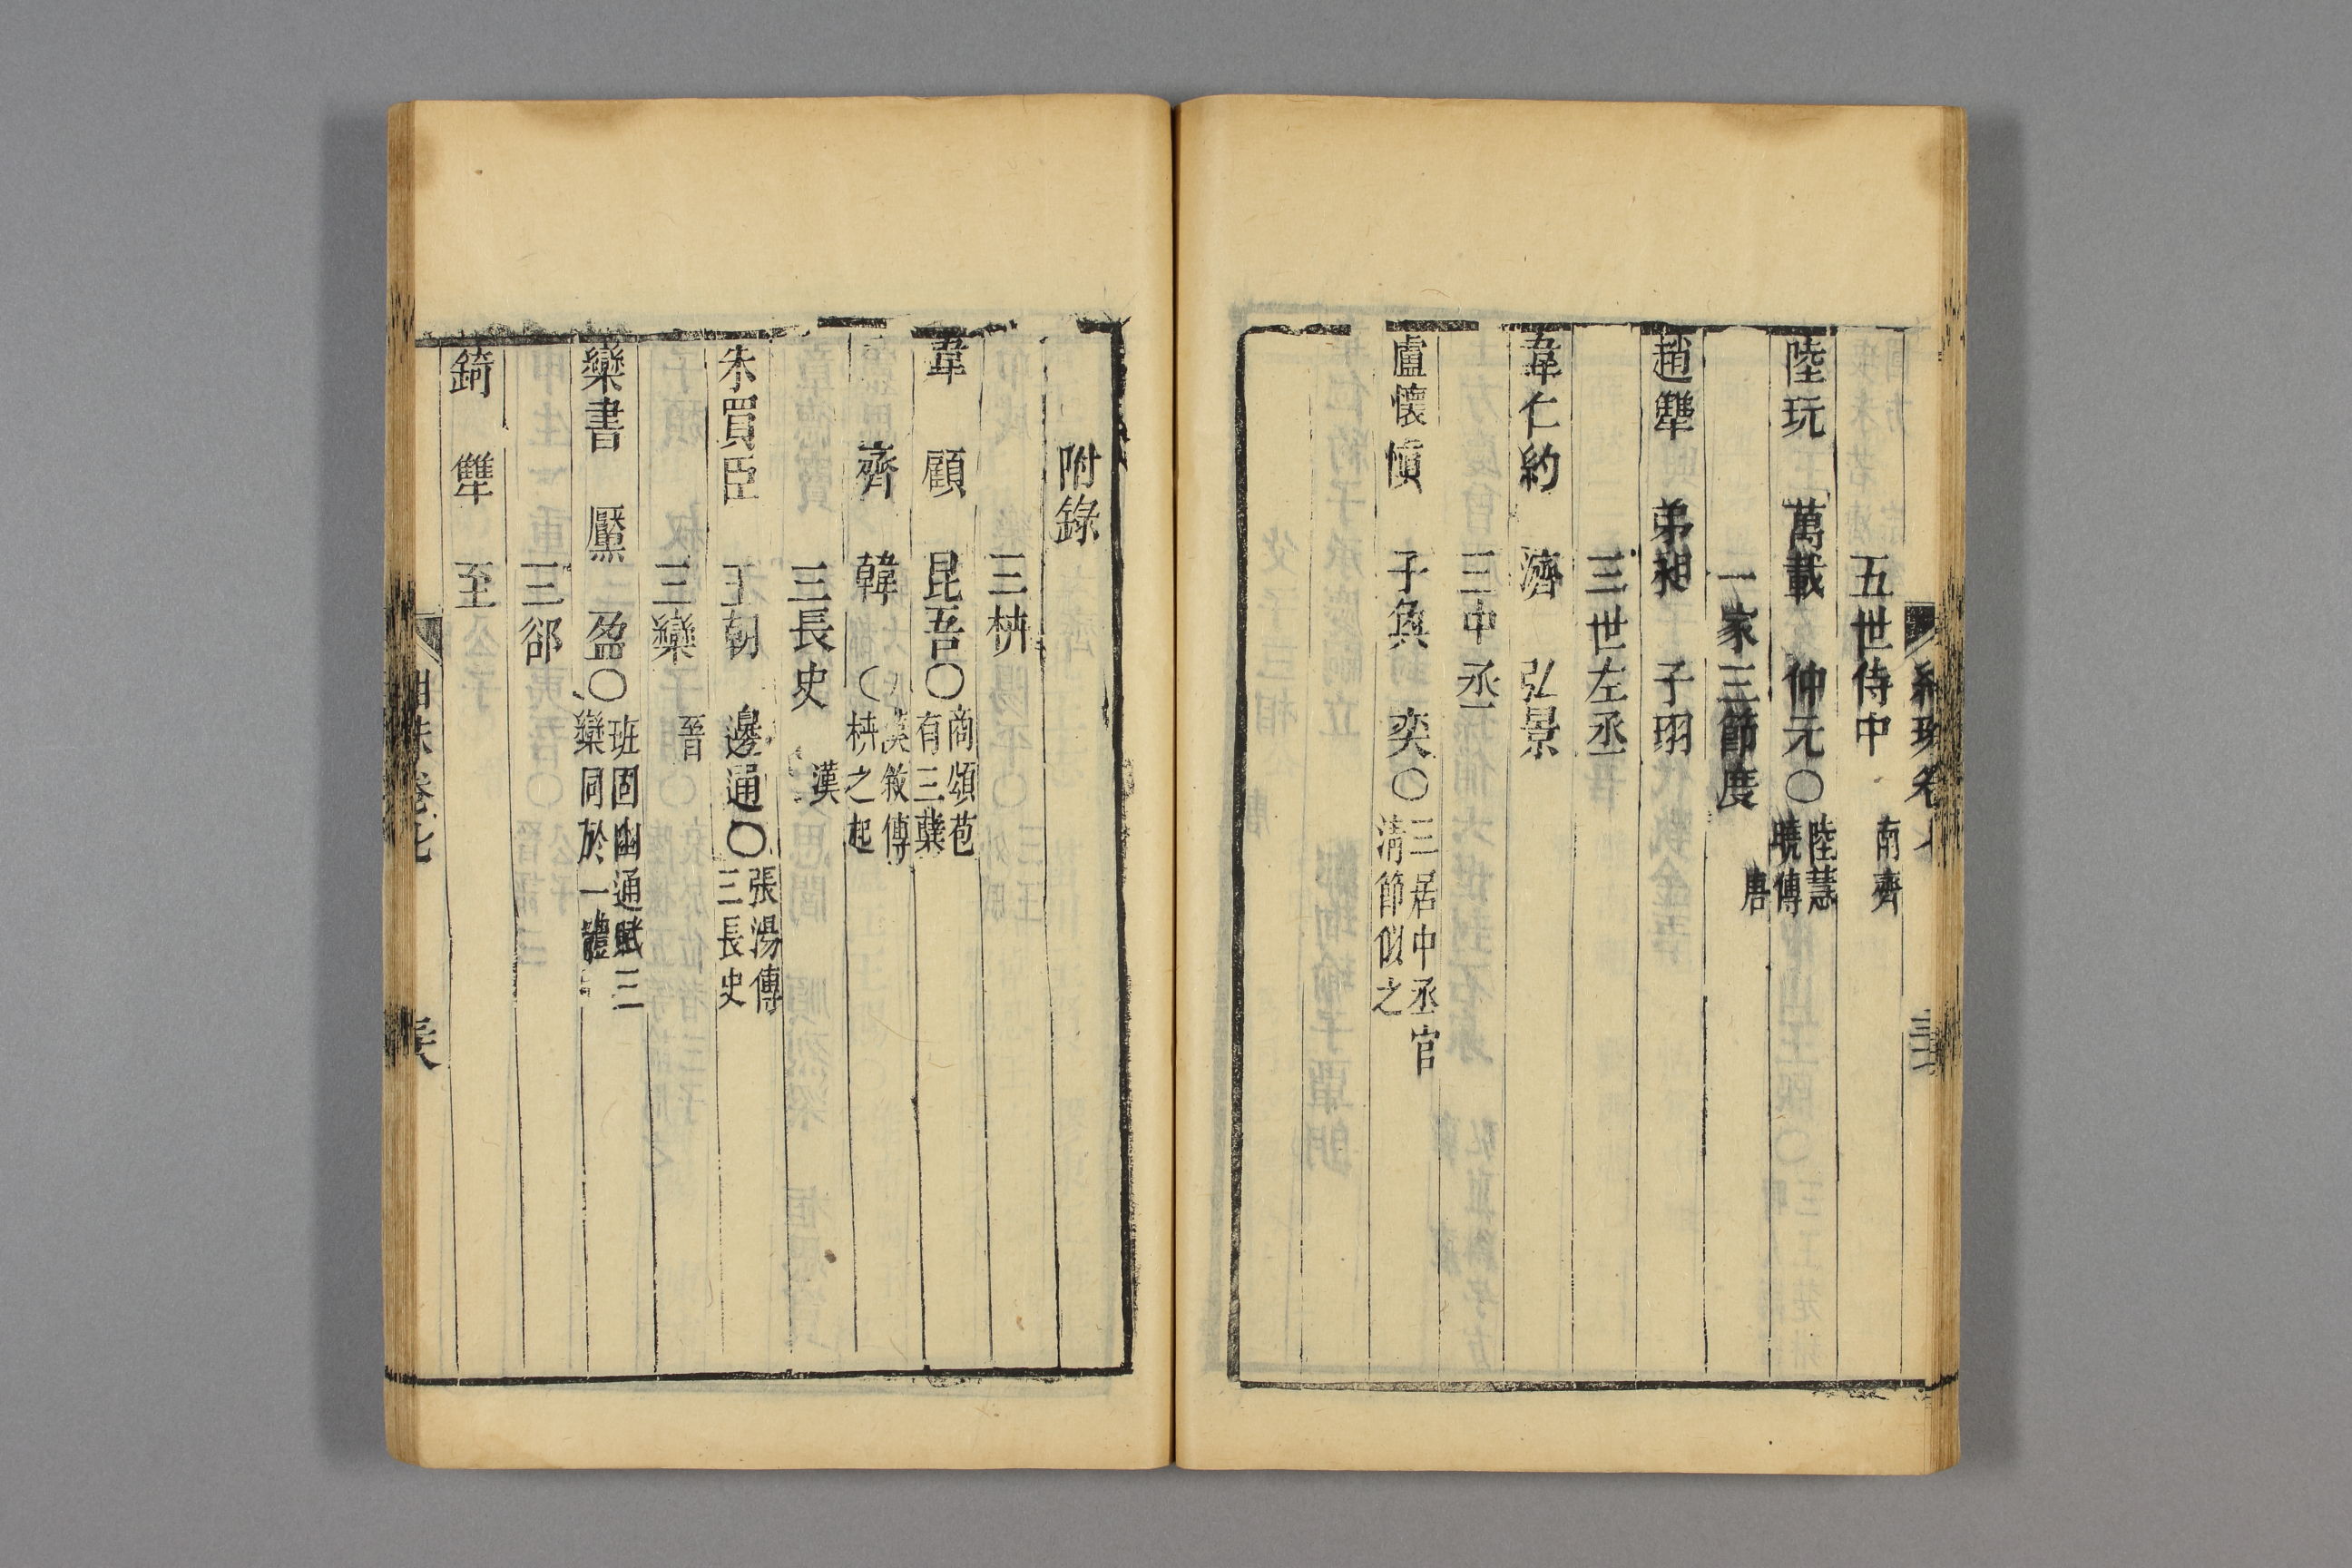 紺珠卷七
五世侍中 南齊
陸玩 萬載 仲元〇陸慧曉傳
一家三節度 唐
趙犨 弟昶 子珝
三世左丞
韋仁約 濟 弘景
三中丞
盧懷慎 子奐 奕〇三居中丞官清節似之
附錄
三枿
韋 顧 昆吾〇商頌苞有三蘖
齊 韓〇漢敘傳枿之起
三長史 漢
朱買臣 王朝 邊通〇張湯傳三長史
三欒 晉
欒書 黶 盈〇班固幽通賦三欒同於一體
三郤
錡 犨 至
紺珠卷七